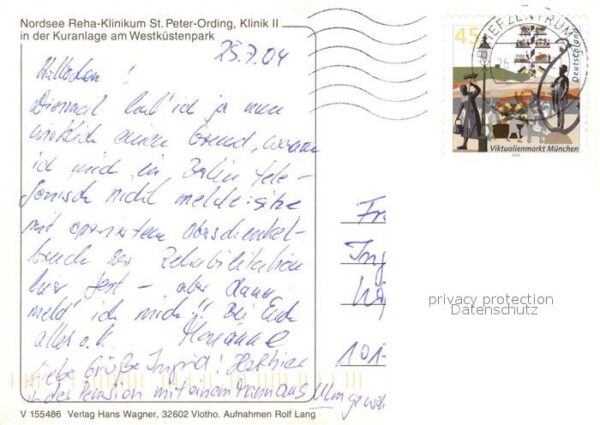 Nordsee Reha-Klinikum St. Peter-Ording, Klinik II
in der Kuranlage am Westküstenpark
25.7.04
45
BRIEFZENTRUM
Deutschland
Viktualienmarkt München
Diesmal hab' ich ja nun
wirklich einen Grund, warum
ich mich in Berlin tele-
fonisch nicht melde: sitze
mit operiertem Oberschenkel-
bruch zur Rehabilitation
hier fest – aber dann
meld' ich mich!! Bei Euch
alles o.k. Marianne
Liebe Grüße Ingrid!
+ der Pension mit einem Mann aus Ulm
Fr
In
101-
privacy protection
Datenschutz
V 155486 Verlag Hans Wagner, 32602 Vlotho. Aufnahmen Rolf Lang